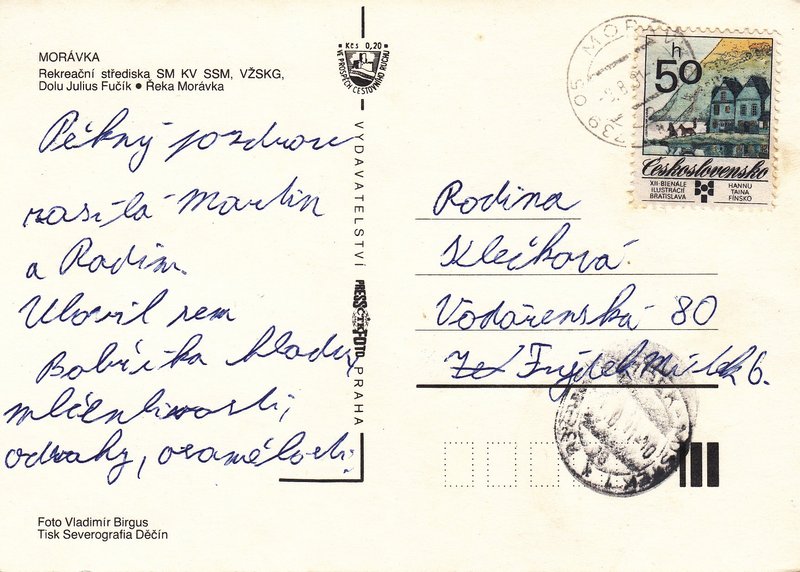 MORÁVKA
Rekreační střediska SM KV SSM, VŽSKG,
Dolu Julius Fučík ● Řeka Morávka
Pěkný pozdrav
zasílá Martin
a Radim
Ulovil sem
Bobříka hladu,
mlčenlivosti,
odvahy, osamělosti.
Foto Vladimír Birgus
Tisk Severografia Děčín
Kčs 0,20
VE PROSPĚCH CESTOVNÍHO RUCHU
VYDAVATELSTVÍ PRESSFOTO PRAHA
ČTK
739 05 MORÁVKA
50 h
Československo
XII · BIENÁLE
ILUSTRÁCIÍ
BRATISLAVA
HANNU
TAINA
FÍNSKO
Rodina
Klečková
Vodárenská 80
Frýdek Místek 6.